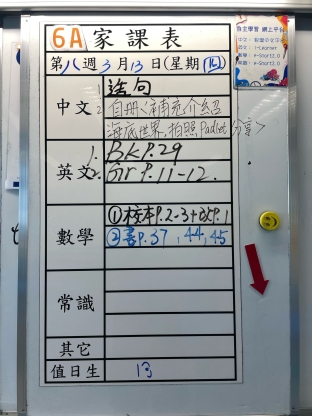 6A 家課表
第八週3月13日(星期四)
中文
1. 造句
2. 自冊<補充介紹
海底世界, 拍照Padlet分享>
英文
1. BK P.29
2. Gr P.11-12.
數學
① 校本P.2-3+改P.1
② 書P.37, 44, 45
常識
其它
值日生 13
自主學習 網上平台